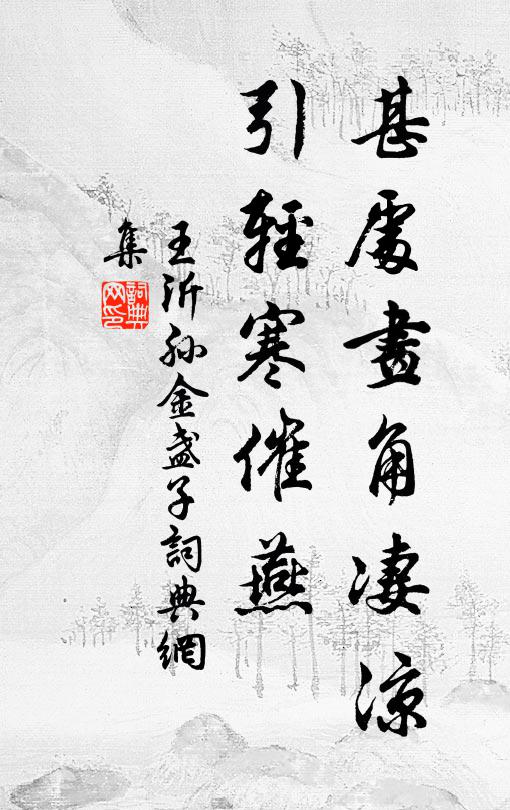 甚處畫角淒涼
引輕寒催燕
王沂孫金盞子詞典網
集
詞典
网印